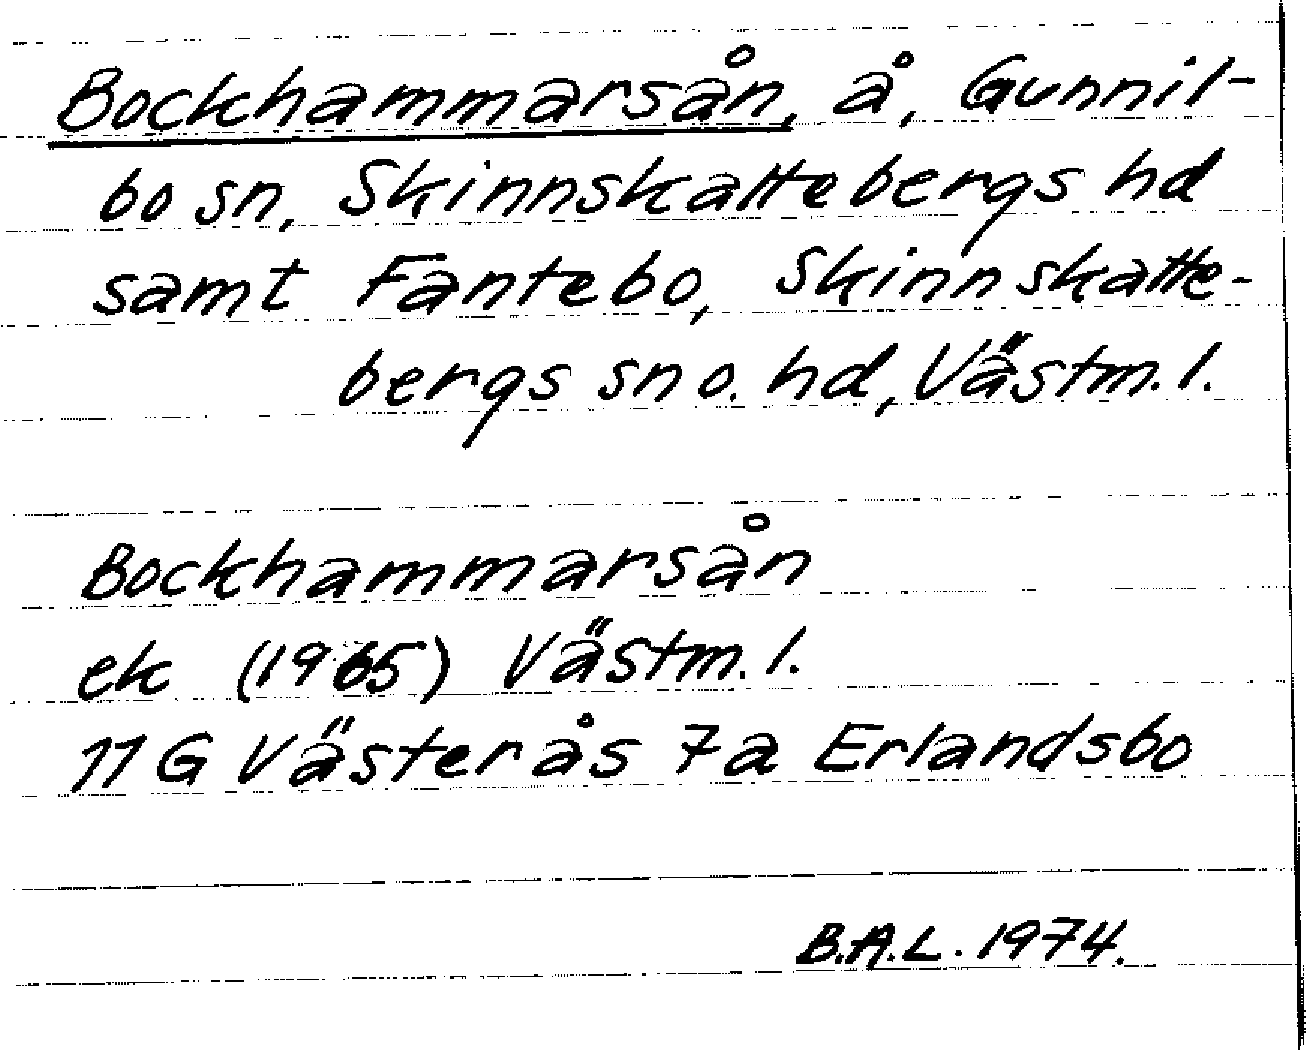 Bockhammarsån, å, Gunnil-
bo sn, Skinnskattebergs hd
samt Fantebo, Skinnskatte-
bergs sn o. hd, Västm. l.
Bockhammarsån
ek (1965) Västm. l.
11G Västerås 7a Erlandsbo
B.A.L. 1974.